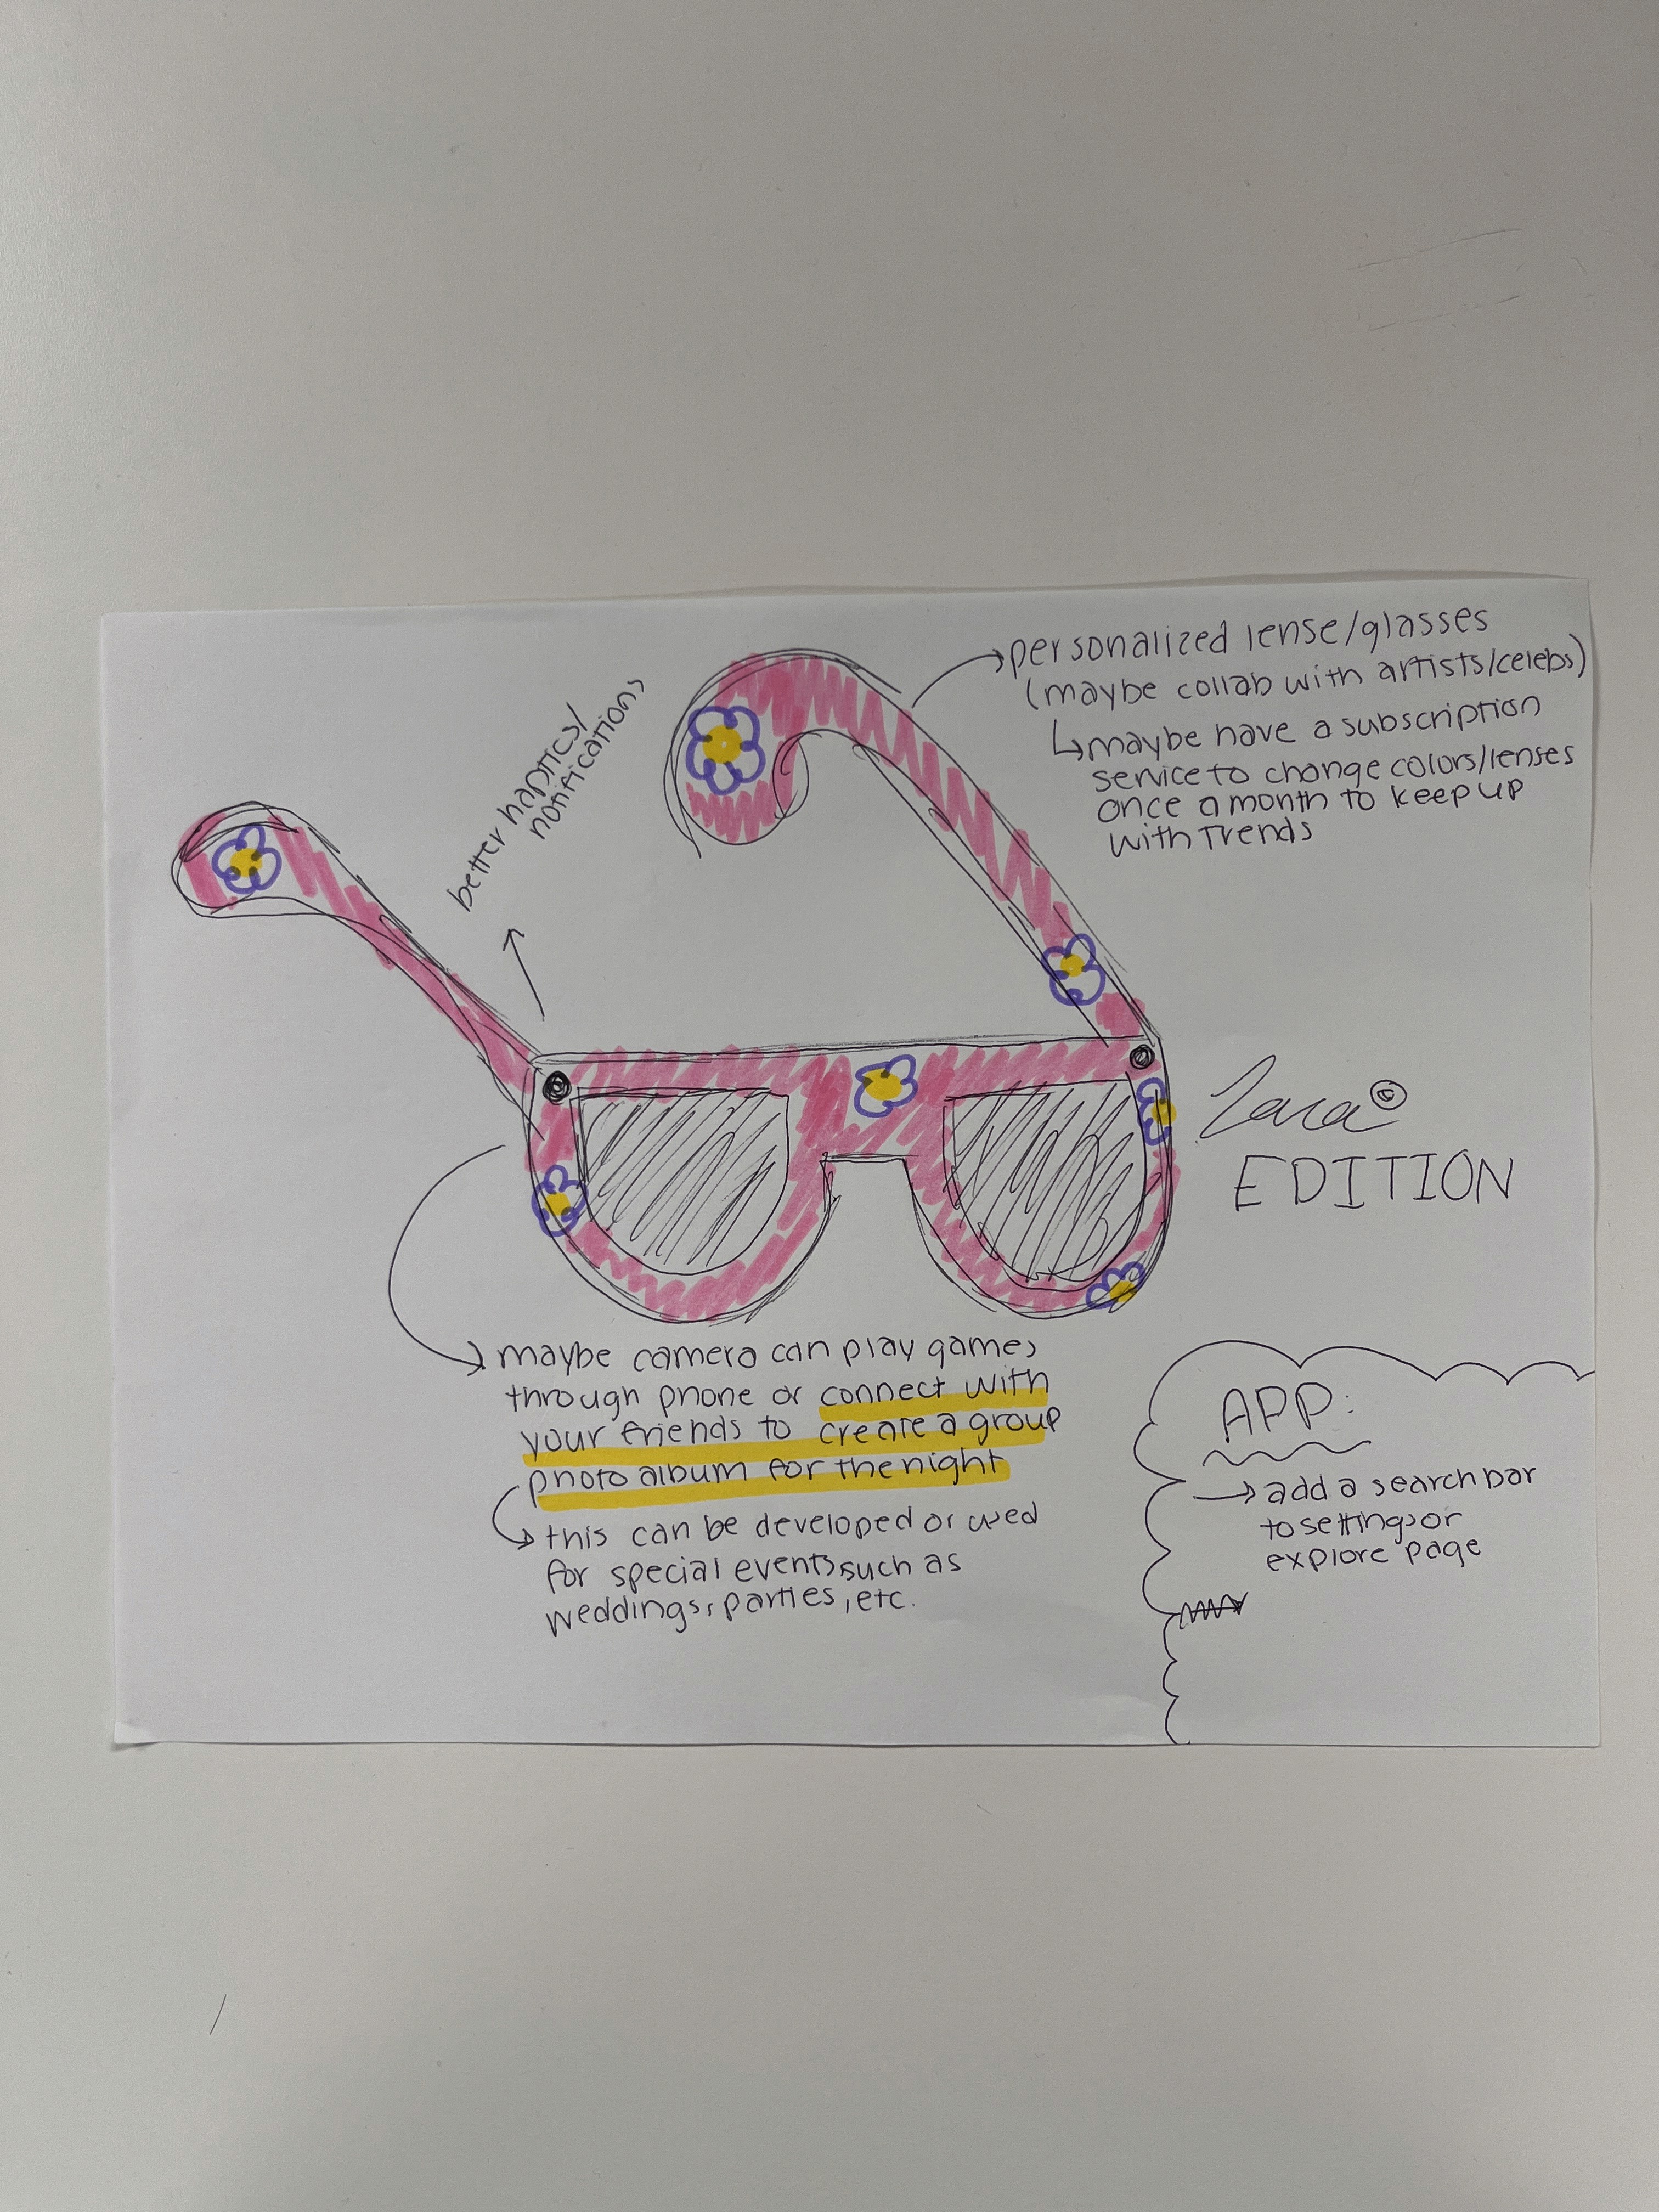 personalized lense/glasses
(maybe collab with artists/celebs)
maybe have a subscription
service to change colors/lenses
once a month to keep up
with trends
better haptics/
notifications
Zara ©
EDITION
maybe camera can play games
through phone or connect with
your friends to create a group
photo album for the night
this can be developed or used
for special events such as
weddings, parties, etc.
APP:
add a search bar
to settings or
explore page